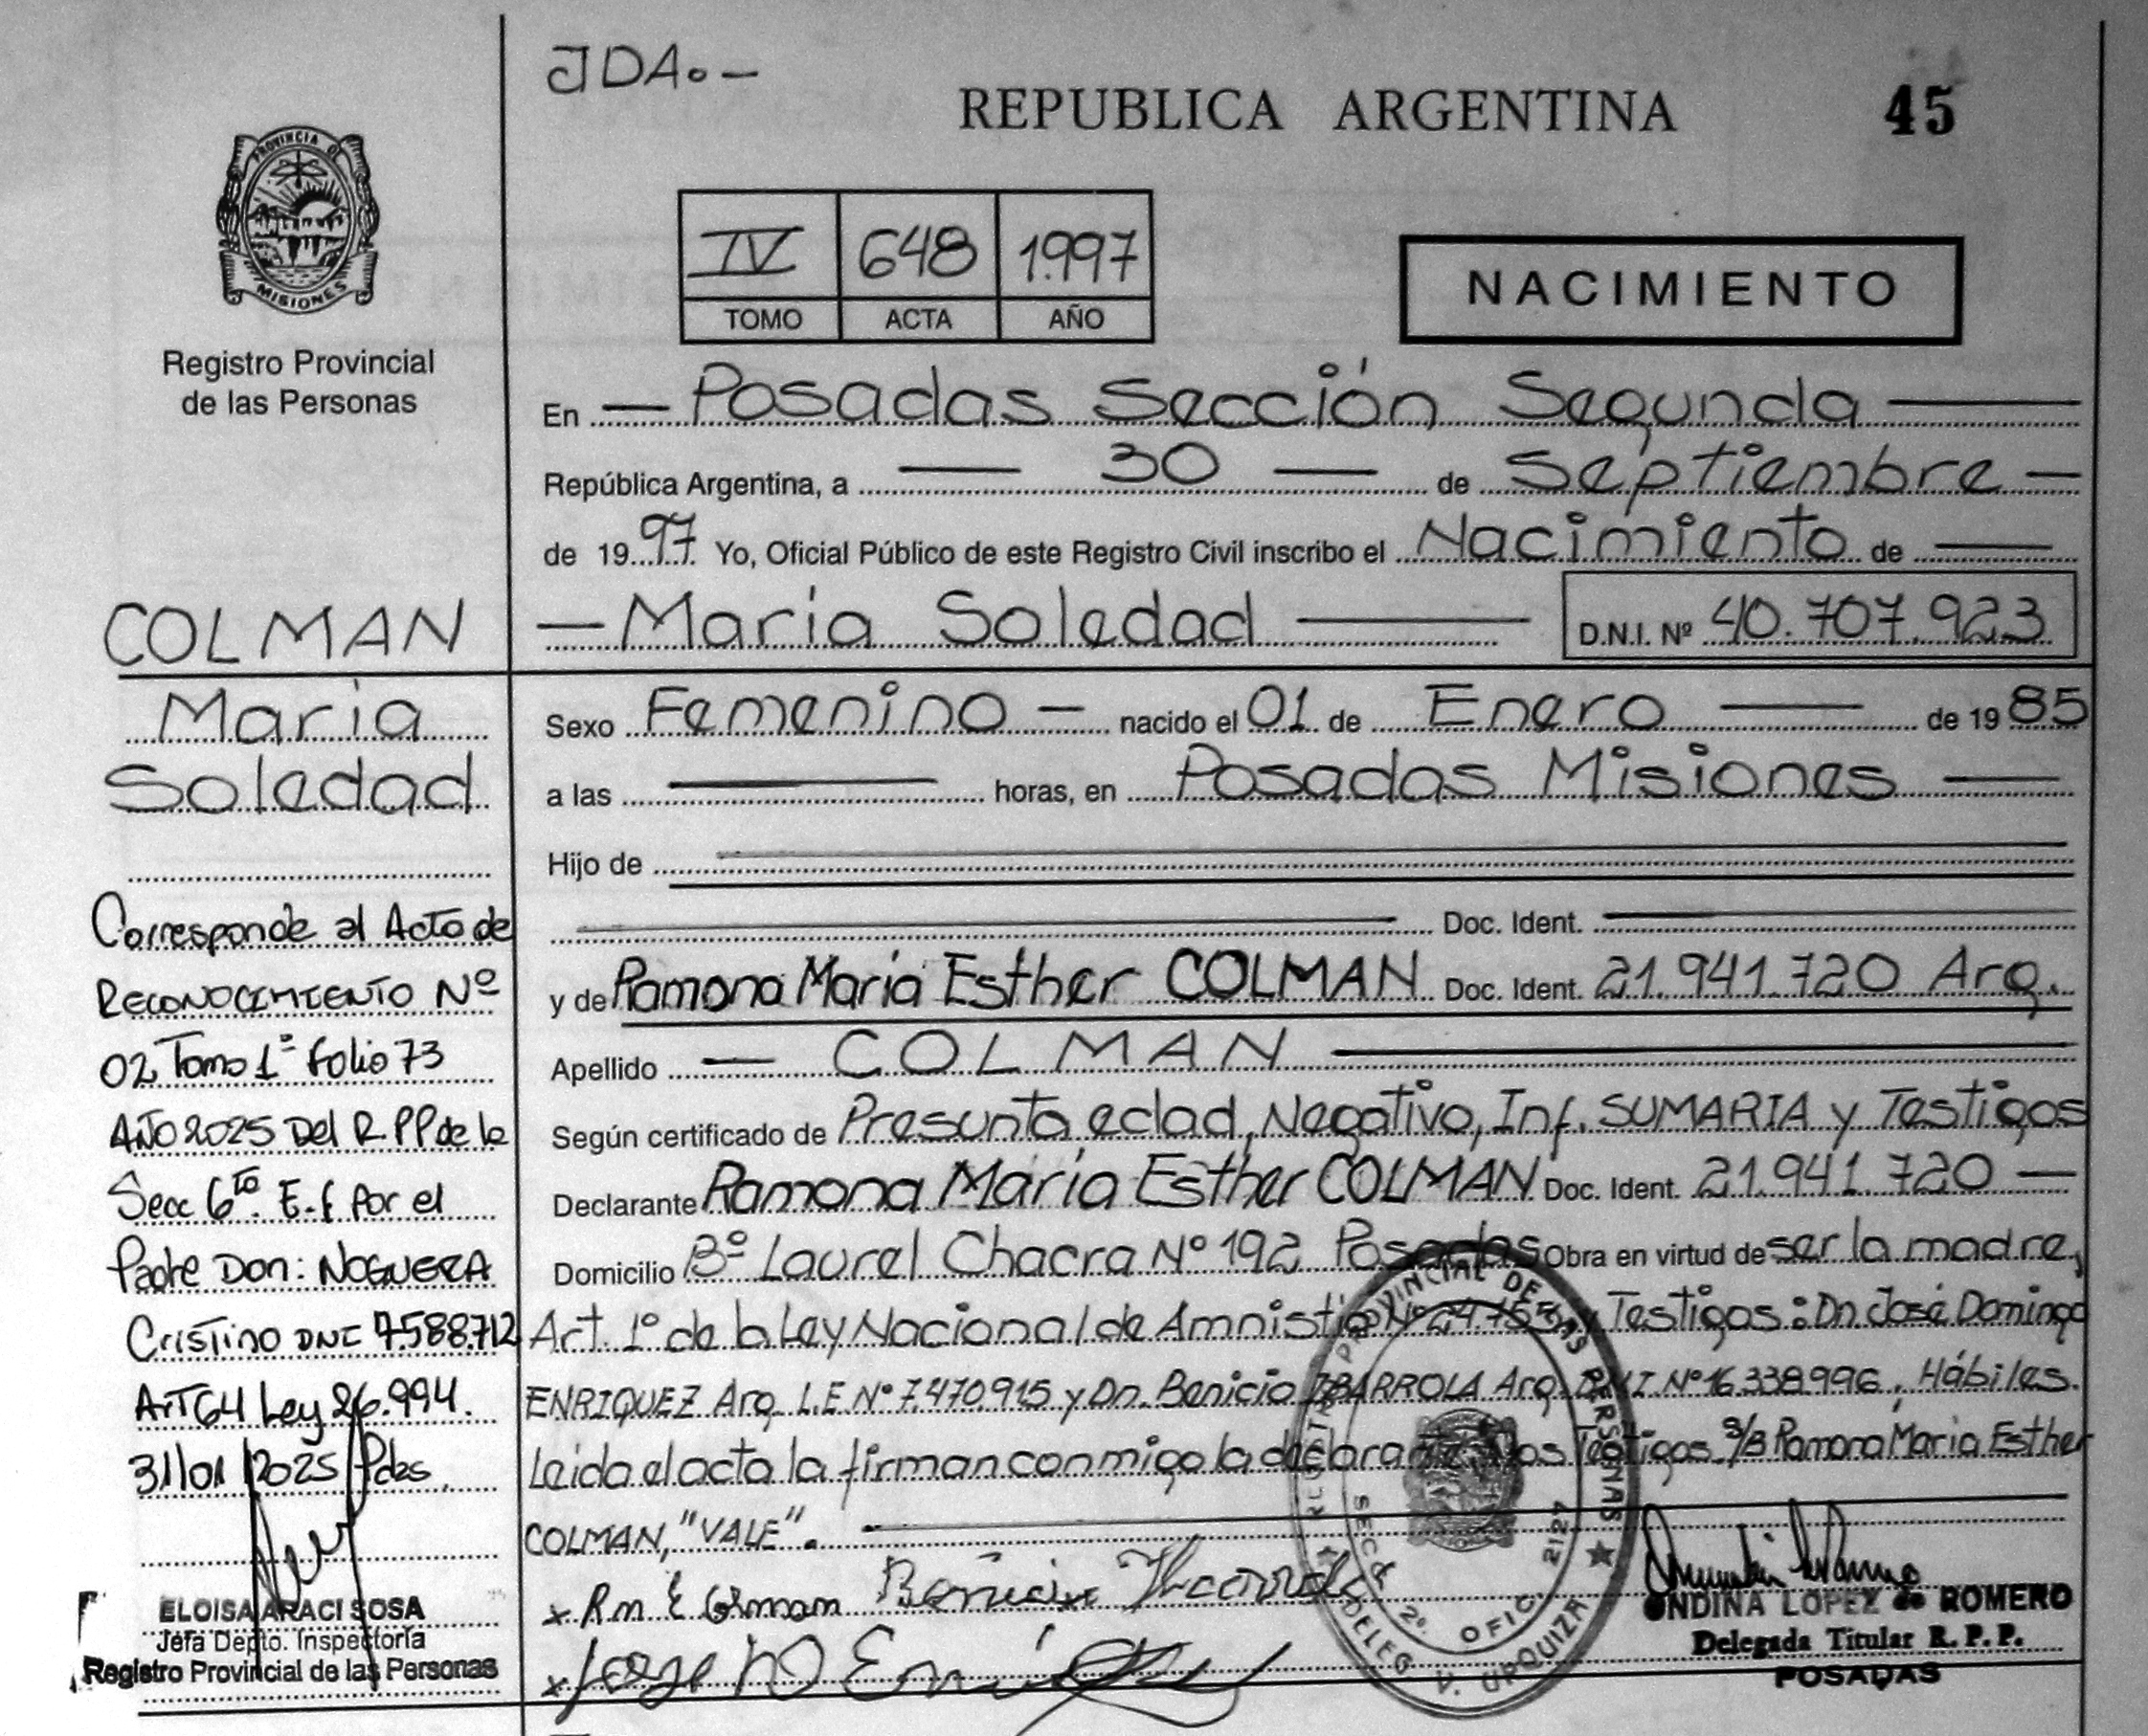 JDA.-
REPUBLICA ARGENTINA
45
PROVINCIA DE
MISIONES
Registro Provincial
de las Personas
IV 648 1.997
TOMO ACTA AÑO
NACIMIENTO
En — Posadas Sección Segunda —
República Argentina, a — 30 — de Septiembre —
de 1997 Yo, Oficial Público de este Registro Civil inscribo el Nacimiento de —
— María Soledad — D.N.I. Nº 40.707.923
Sexo Femenino — nacido el 01 de Enero — de 1985
a las — horas, en Posadas Misiones —
Hijo de —
— Doc. Ident. —
y de Ramona María Esther COLMAN Doc. Ident. 21.941.720 Arg.
Apellido — COLMAN —
Según certificado de Presunta edad, Negativo, Inf. SUMARIA y Testigos
Declarante Ramona María Esther COLMAN Doc. Ident. 21.941.720 —
Domicilio Bº Laurel Chacra Nº 192 Posadas Obra en virtud de ser la madre,
Art. 1º de la Ley Nacional de Amnistía Nº 24.755 y Testigos: Dn José Domingo
ENRIQUEZ Arg. L.E Nº 7.470.915 y Dn. Benicio IBARROLA Arg. DNI Nº 16.338.996, Hábiles.
Leída el acta la firman conmigo la declarante, y los Testigos. S/B Ramona María Esther
COLMAN, "VALE". —
COLMAN
María
Soledad
Corresponde al Acto de
RECONOCIMIENTO Nº
02 Tomo 1º Folio 73
AÑO 2025 Del R.PP de la
Secc 6to. E.f Por el
Padre Don: NOGUERA
CRISTINO DNI 7.588.712
ArT 64 Ley 26.994.
31/01/2025 Pdas.
ELOISA ARACI SOSA
Jefa Depto. Inspectoría
Registro Provincial de las Personas
x Rm E Colman Benicio Ibarrola
REGISTRO PROVINCIAL DE LAS PERSONAS
SECC. 2º. OFIC. 2127
DELEG V. URQUIZA
ONDINA LOPEZ de ROMERO
Delegada Titular R. P. P.
POSADAS